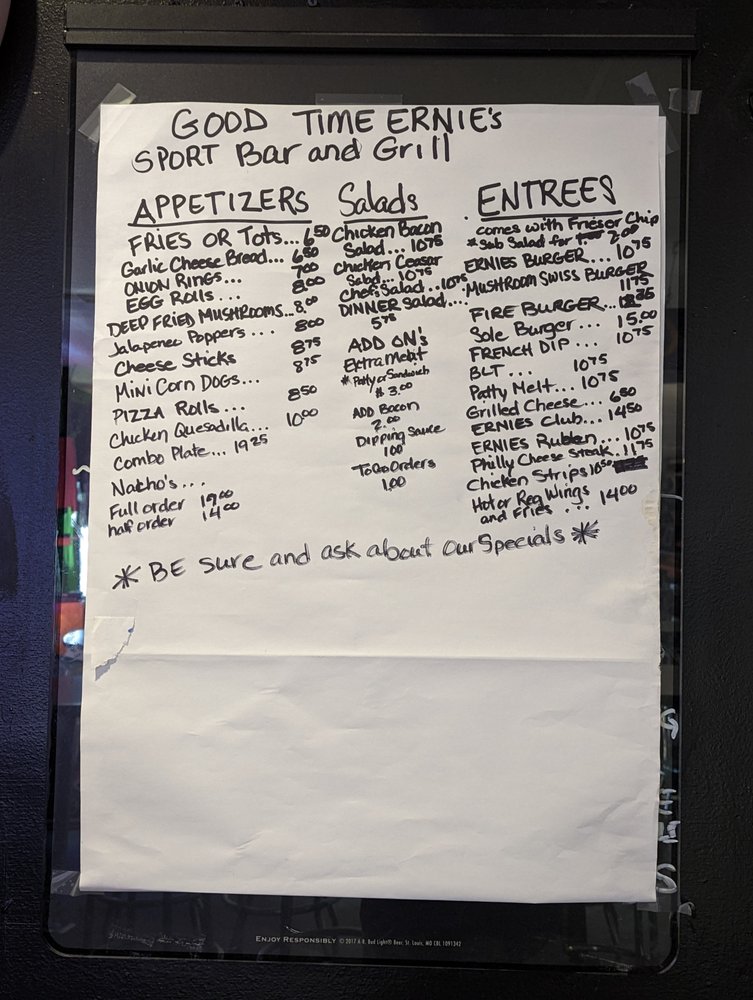 GOOD TIME ERNIE's
SPORT Bar and Grill
APPETIZERS
FRIES OR Tots... 6.50
Garlic Cheese Bread... 6.50
ONION RINGS... 7.00
EGG ROLLS... 8.00
DEEP FRIED MUSHROOMS... 8.00
Jalapeneo Poppers... 8.00
Cheese Sticks 8.75
Mini Corn DOGS... 8.75
PIZZA Rolls... 8.50
Chicken Quesadilla... 10.00
Combo Plate... 19.25
Natcho's...
Full order 19.00
half order 14.00
Salads
Chicken Bacon
Salad... 10.75
Chicken Ceasar
Salad... 10.75
Chef Salad... 10.75
DINNER Salad....
5.75
ADD ON's
Extra meat
* Patty or Sandwich
$ 3.00
ADD Bacon
2.00
Dipping Sauce
1.00
To Go Orders
1.00
ENTREES
comes with Fries or Chip
*Sub Salad for 2.00
ERNIES BURGER... 10.75
MUSHROOM SWISS BURGER
11.75
FIRE BURGER...
Sole Burger... 15.00
FRENCH DIP... 10.75
BLT... 10.75
Patty Melt... 10.75
Grilled Cheese... 6.50
ERNIES Club... 14.50
ERNIES Ruben... 10.75
Philly Cheese Steak. 11.75
Chicken Strips 10.50
Hot or Reg Wings
and Fries... 14.00
* BE sure and ask about our Specials *
ENJOY RESPONSIBLY © 2017 A-B, Bud Light® Beer, St. Louis, MO